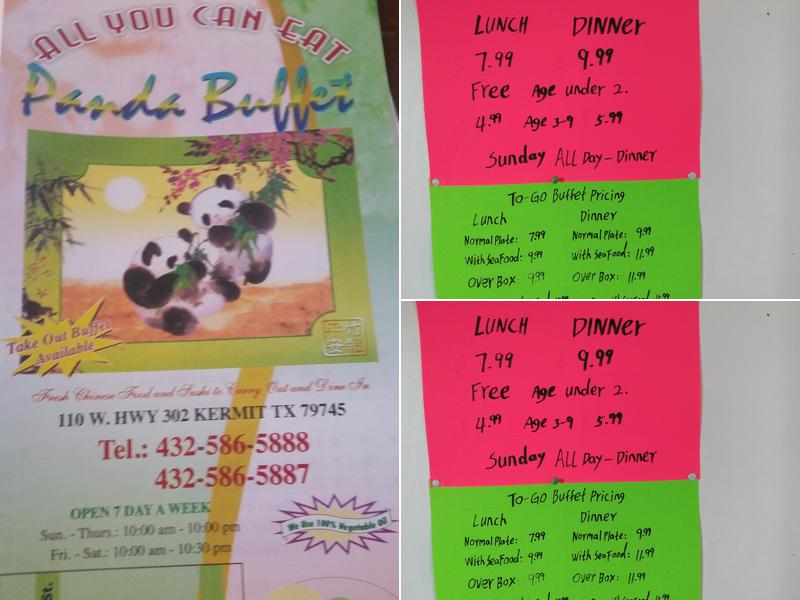 ALL YOU CAN EAT
Panda Buffet
Take Out Buffet
Available
Fresh Chinese Food and Sushi to Carry Out and Dine In
110 W. HWY 302 KERMIT TX 79745
Tel.: 432-586-5888
432-586-5887
OPEN 7 DAY A WEEK
Sun. - Thurs.: 10:00 am - 10:00 pm
Fri. - Sat.: 10:00 am - 10:30 pm
We Use 100% Vegetable Oil
St.
LUNCH DINNER
7.99 9.99
Free Age under 2.
4.99 Age 3-9 5.99
Sunday ALL Day - Dinner
To-Go Buffet Pricing
Lunch Dinner
Normal Plate: 7.99 Normal Plate: 9.99
With Seafood: 9.99 With Seafood: 11.99
Over Box: 9.99 Over Box: 11.99
LUNCH DINNER
7.99 9.99
Free Age under 2.
4.99 Age 3-9 5.99
Sunday ALL Day - Dinner
To-Go Buffet Pricing
Lunch Dinner
Normal Plate: 7.99 Normal Plate: 9.99
With Seafood: 9.99 With Seafood: 11.99
Over Box: 9.99 Over Box: 11.99